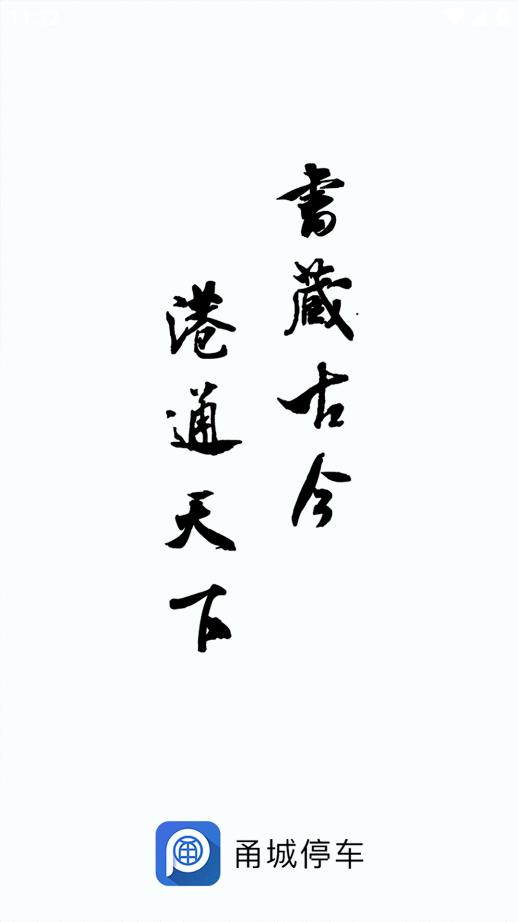 書藏古今
港通天下
甬城停车